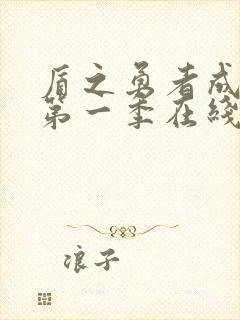 盾之勇者成
第一季在线
浪子